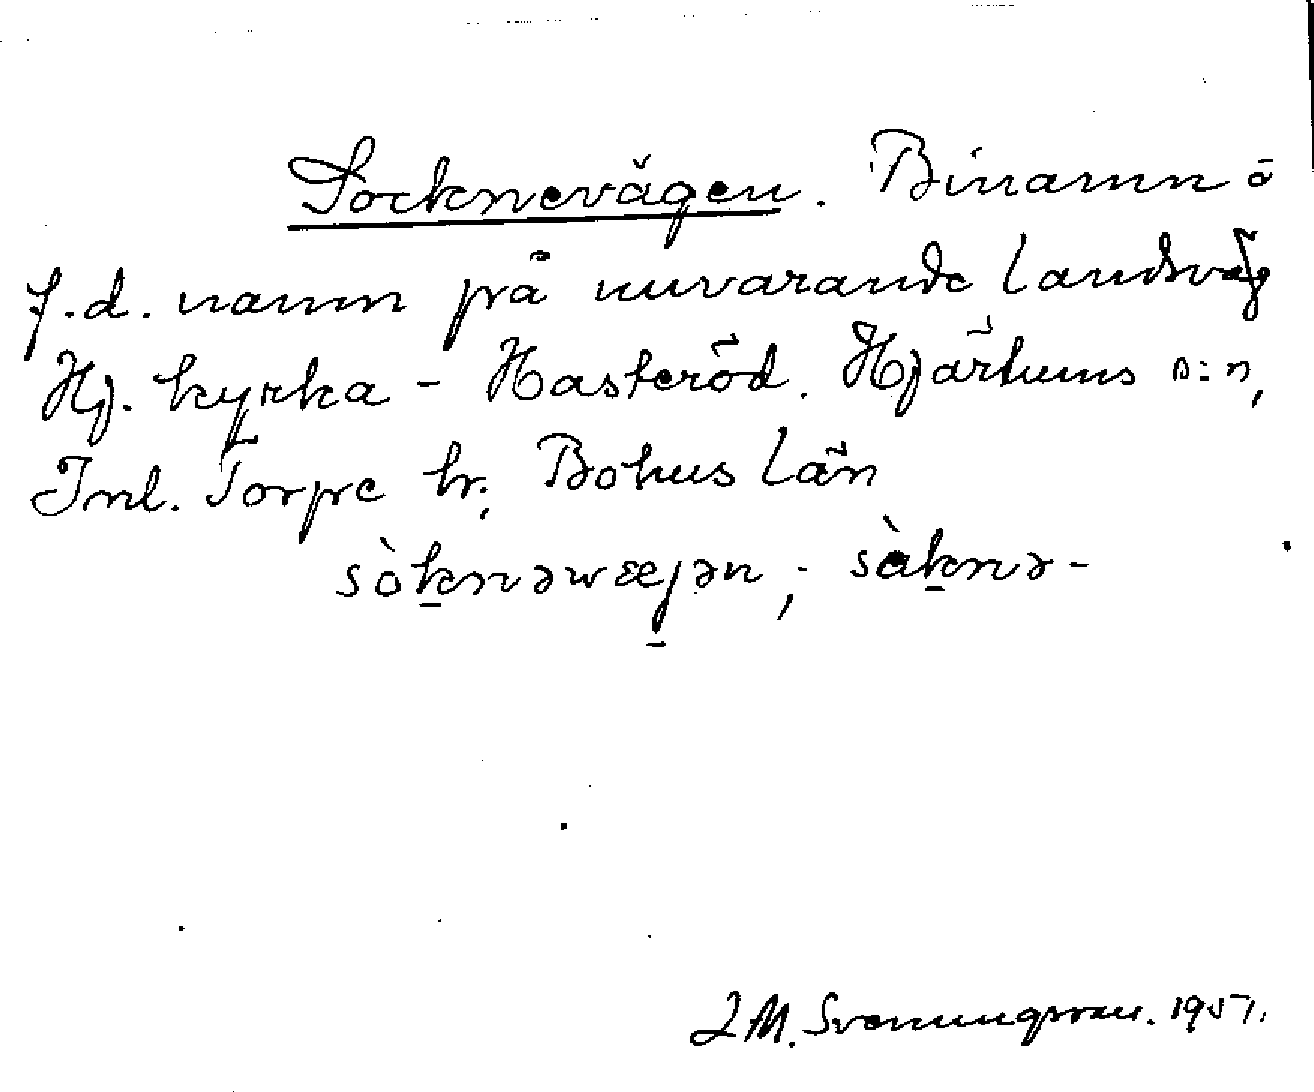 Socknevägen. Binamn o
f.d. namn på nuvarande landsväg
Hj. kyrka - Hasteröd. Hjärtums s:n,
Inl. Torpe hr, Bohus län
sòknəwææjən, ; sàknə-
J M. Svenungsson. 1957.